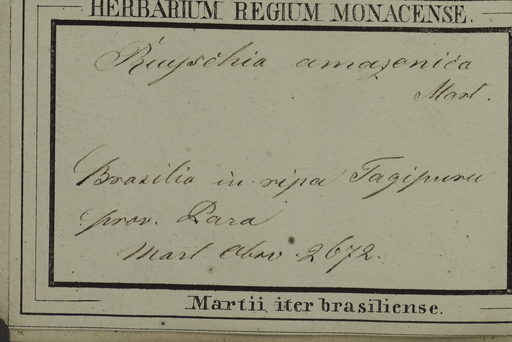 HERBARIUM REGIUM MONACENSE.
Ruyschia amazonica
Mart.
Brasilia in ripa Tagipuru
prov. Para
Mart. Obsv. 2672.
Martii iter brasiliense.